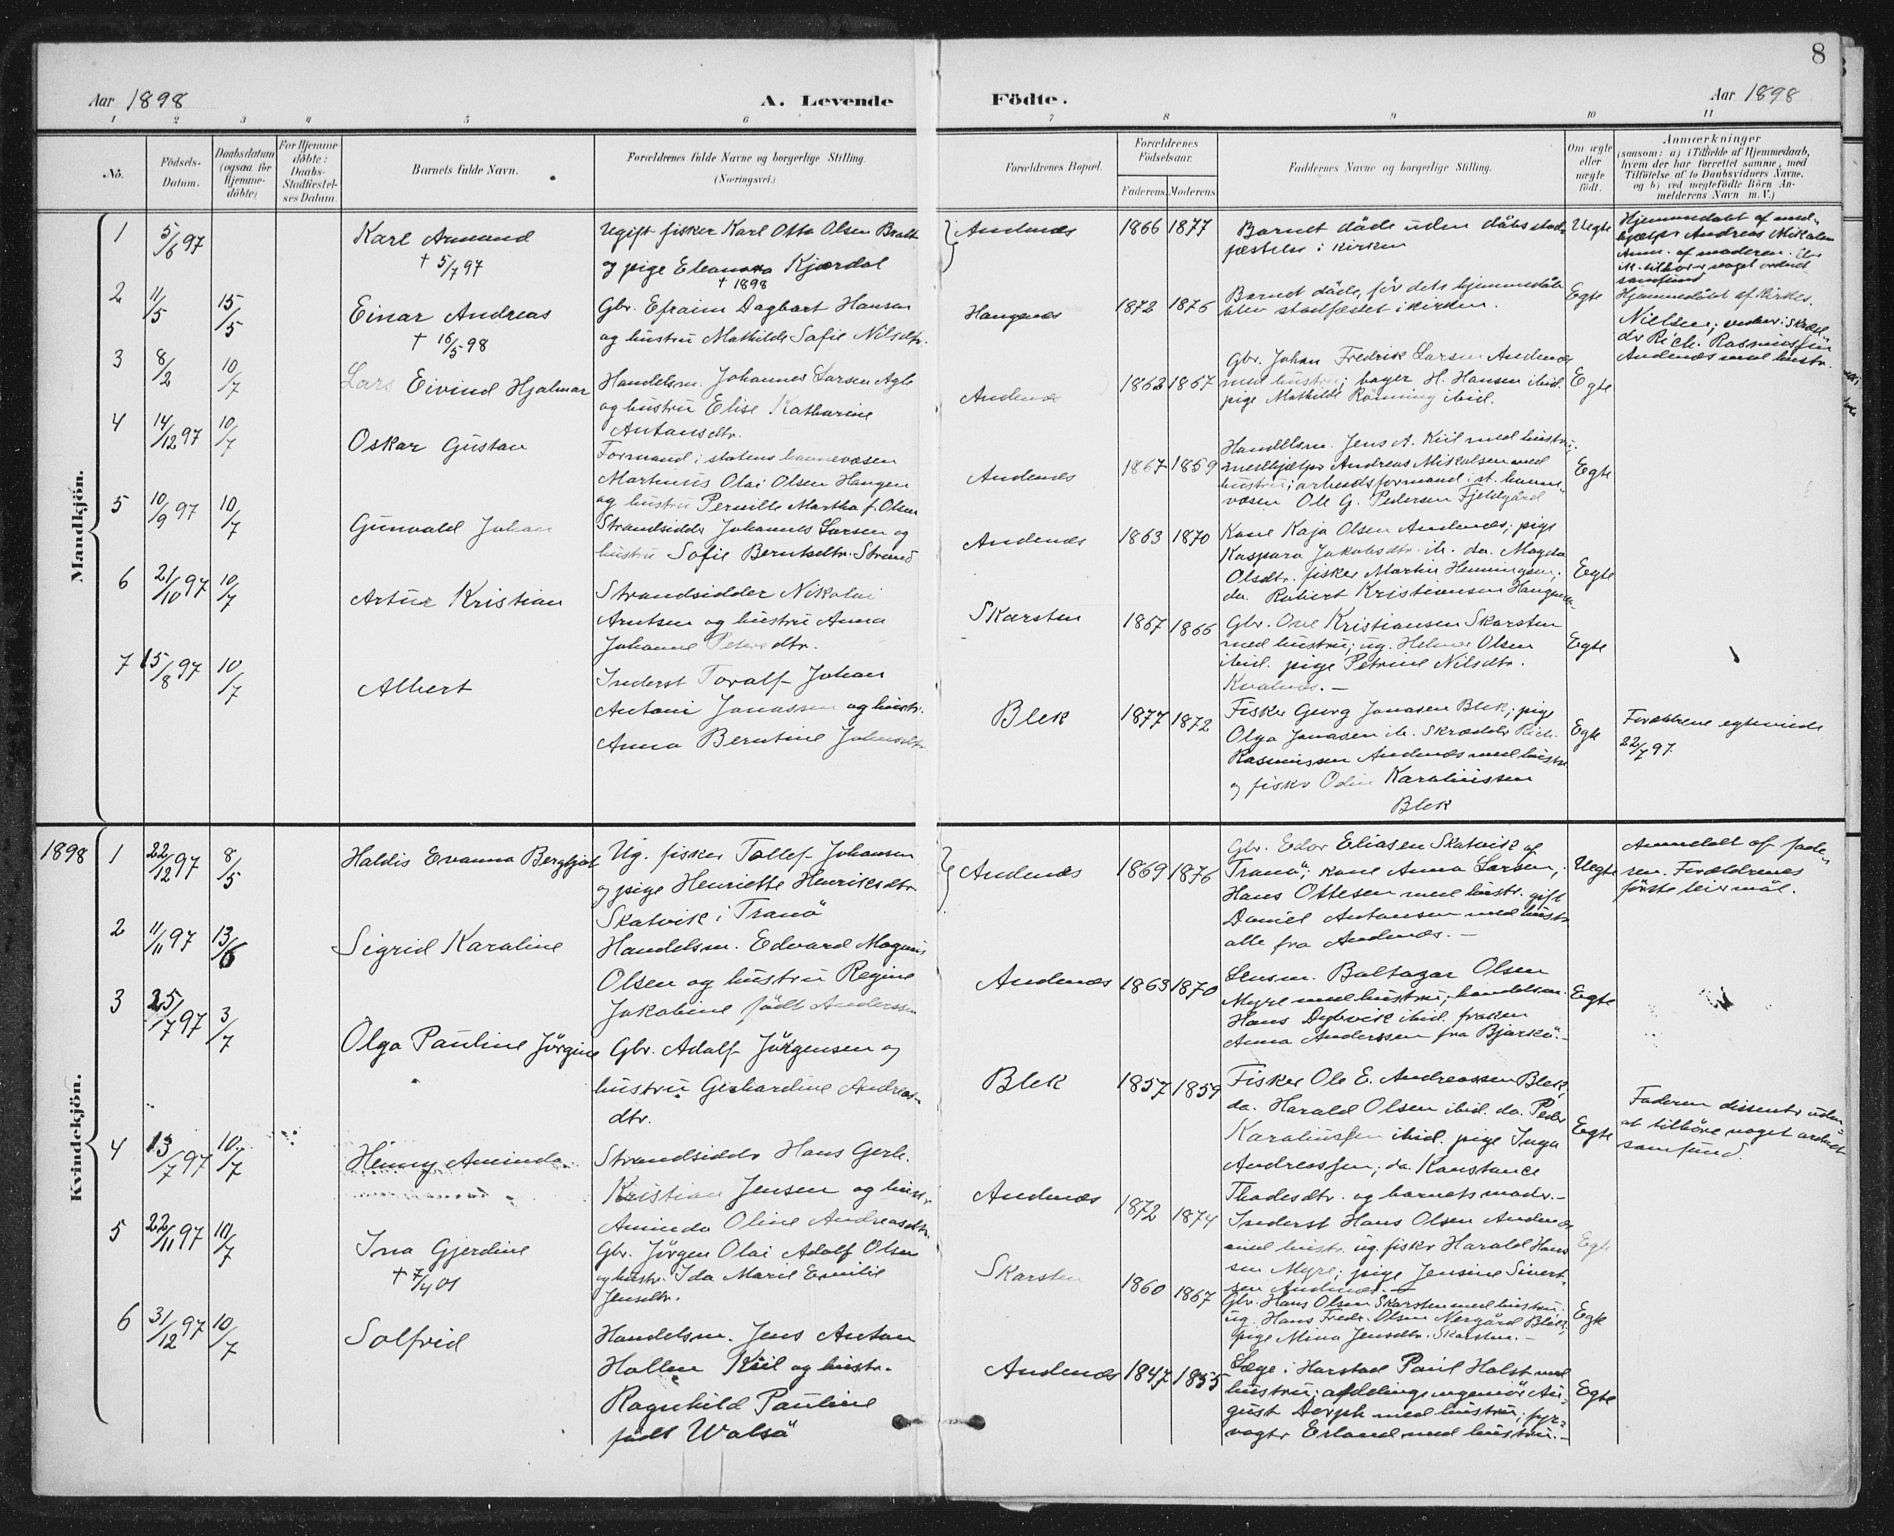 8
Aar 1898
A. Levende
Födte.
Aar 1898
1 2 3 4 5 6 7 8 9 10 11
No.
Födsels-Datum.
Daabsdatum (ogsaa för Hjemme-döbte)
For Hjemme-döbte: Daabs-Stadfæstel-ses Datum
Barnets fulde Navn.
Forældrenes fulde Navne og borgerlige Stilling.
(Næringsvei.)
Forældrenes Bopæl.
Forældrenes Födselsaar.
Faderens Moderens
Faddernes Navne og borgerlige Stilling.
Om ægte eller uægte födt.
Anmærkninger
(saasom: a) i Tilfælde af Hjemmedaab, hvem der har forrettet samme, med Tilföielse af to Daabsvidners Navne, og b) ved uegtefödte Börn An-melderens Navn m.V.)
Mandkjön.
1 5/6 97 Karl Armand
+ 5/7 97
Ugift fisker Karl Otto Olsen
og pige Eleonora Kjærdal
+ 1898
Andenæs 1866 1877
Barnet döde uden dåbsstad-
fæstelse i kirken
Uegte
Hjemmedöbt af med-
hjælper Andreas Mikalsen
Anm. af moderen.
samfund
2 11/5 15/5 Einar Andreas
+ 16/5 98
Gbr. Efraim Dagbart Hansen
og hustru Mathilde Sofie Nilsdtr.
Haugnes 1872 1876
Barnet döde, för dets hjemmedåb
blev stadfæstet i kirken.
Egte
Hjemmedöbt af kirkes.
Nielsen;
Rich. Rasmussen
Andenæs med hustr.
3 8/2 10/7 Lars Eivind Hjalmar
Handelsm. Johannes Larsen
og hustru Elise Katharine
Antonsdtr.
Andenæs 1862 1867
Gbr. Johan Fredrik Larsen Andenæs
med hustru; bager H. Hansen ibid.
pige Mathilde Rönning ibid.
Egte
4 14/12 97 10/7 Oskar Gustav
Formand i statens havnevæsen
Martinus Olai Olsen Haugen
og hustru Pernille Martha f. Olsen
Andenæs 1867 1859
Handelsm. Jens A. Kiil med hustru;
medhjælper Andreas Mikalsen med
hustru; arbeidsformand i st. havne-
væsen Ole G. Pedersen Fjeldgård
Egte
5 10/9 97 10/7 Gunvald Johan
Strandsidder Johannes Larsen og
hustru Sofie Berntsdtr. Strand
Andenæs 1863 1870
Kone Kaja Olsen Andenæs; pige
Kaspara Jakobsdtr. ib. do. Magda
Olsdtr. fisker Martin Henningsen;
do. Robert Kristiansen
Egte
6 21/10 97 10/7 Artur Kristian
Strandsidder Nikolai
Arntsen og hustru Anna
Johanne Petersdtr.
Skarsten 1867 1866
Gbr. One Kristiansen Skarsten
med hustru; ug. Helmer Olsen
ibid. pige Petrine Nilsdtr.
Kvalnæs. –
Egte
7 15/8 97 10/7 Albert
Inderst Toralf Johan
Antoni Jonassen og hustr.
Anna Berntine Johnsdtr.
Blek 1877 1872
Fisker Georg Jonasen Blek; pige
Olga Jonasen ib. Skrædder Rich.
Rasmussen Andenæs med hustru
og fisker Odin Karoliussen
Blek
Egte
Forældrene egteviede
22/7 97.
1898
Kvindekjön.
1 22/12 97 8/5 Haldis Evanna Bergljot
Ug. fisker Tollef Johansen
og pige Henriette Henriksdtr.
Skatvik i Tranö
Andenæs 1869 1876
Gbr. Edor Eliasen Skatvik af
Tranö; kone Anna Larsen;
Hans Ottesen med hustr. gift
Daniel Antonsen med hustr.
alle fra Andenæs. –
Uegte
Anmeldt af fade-
ren. Forældrenes
förste leiermål.
2 11/11 97 13/6 Sigrid Karoline
Handelsm. Edvard Magnus
Olsen og hustru Regine
Jakobine født Anderssen
Andenæs 1863 1870
Lensm. Baltazar Olsen
Myre med hustru; handelsm.
Hans Dybvik ibid. fröken
Anna Anderssen fra Bjarkö. –
Egte
3 25/7 97 3/7 Olga Pauline Jörgine
Gbr. Adolf Jörgensen og
hustru Gerhardine Andreas-
dtr.
Blek 1857 1859
Fisker Ole E. Andreassen Blek;
do. Harald Olsen ibid. do. Peder
Karoliussen ibid. pige Inga
Andreassen; do. Konstance
Thodesdtr. og barnets moder. –
Egte
Faderen dissenter uden
at tilhöre noget ordnet
samfund.
4 13/7 97 10/7 Henny Aminda
Strandsidder Hans Gerh.
Kristian Jensen og hustr.
Aminda Oline Andreasdtr.
Andenæs 1872 1874
Inderst Hans Olsen Andenæs
med hustr. ug. fisker Harald Han-
sen Myre; pige Jensine Sivert-
sen Andenæs. –
Egte
5 22/11 97 10/7 Ina Gjerdine
+ 7/4 01
Gbr. Jörgen Olai Adolf Olsen
og hustr. Ida Marie Emilie
Jensdtr.
Skarsten 1860 1867
Gbr. Hans Olsen Skarsten med hustru;
ug. Hans Fredr. Olsen Nergård Blek;
pige Mina Jensdtr. Skarsten. –
Egte
6 31/12 97 10/7 Solfrid
Handelsm. Jens Anton
Hollen Kiil og hustr.
Ragnhild Pauline
født Walsö
Andenæs 1847 1855
Læge i Harstad Paul Holst med
hustru; afdelingsingeniör Au-
gust Dorph med hustru; fyr-
vogter Erland med hustru. –
Egte